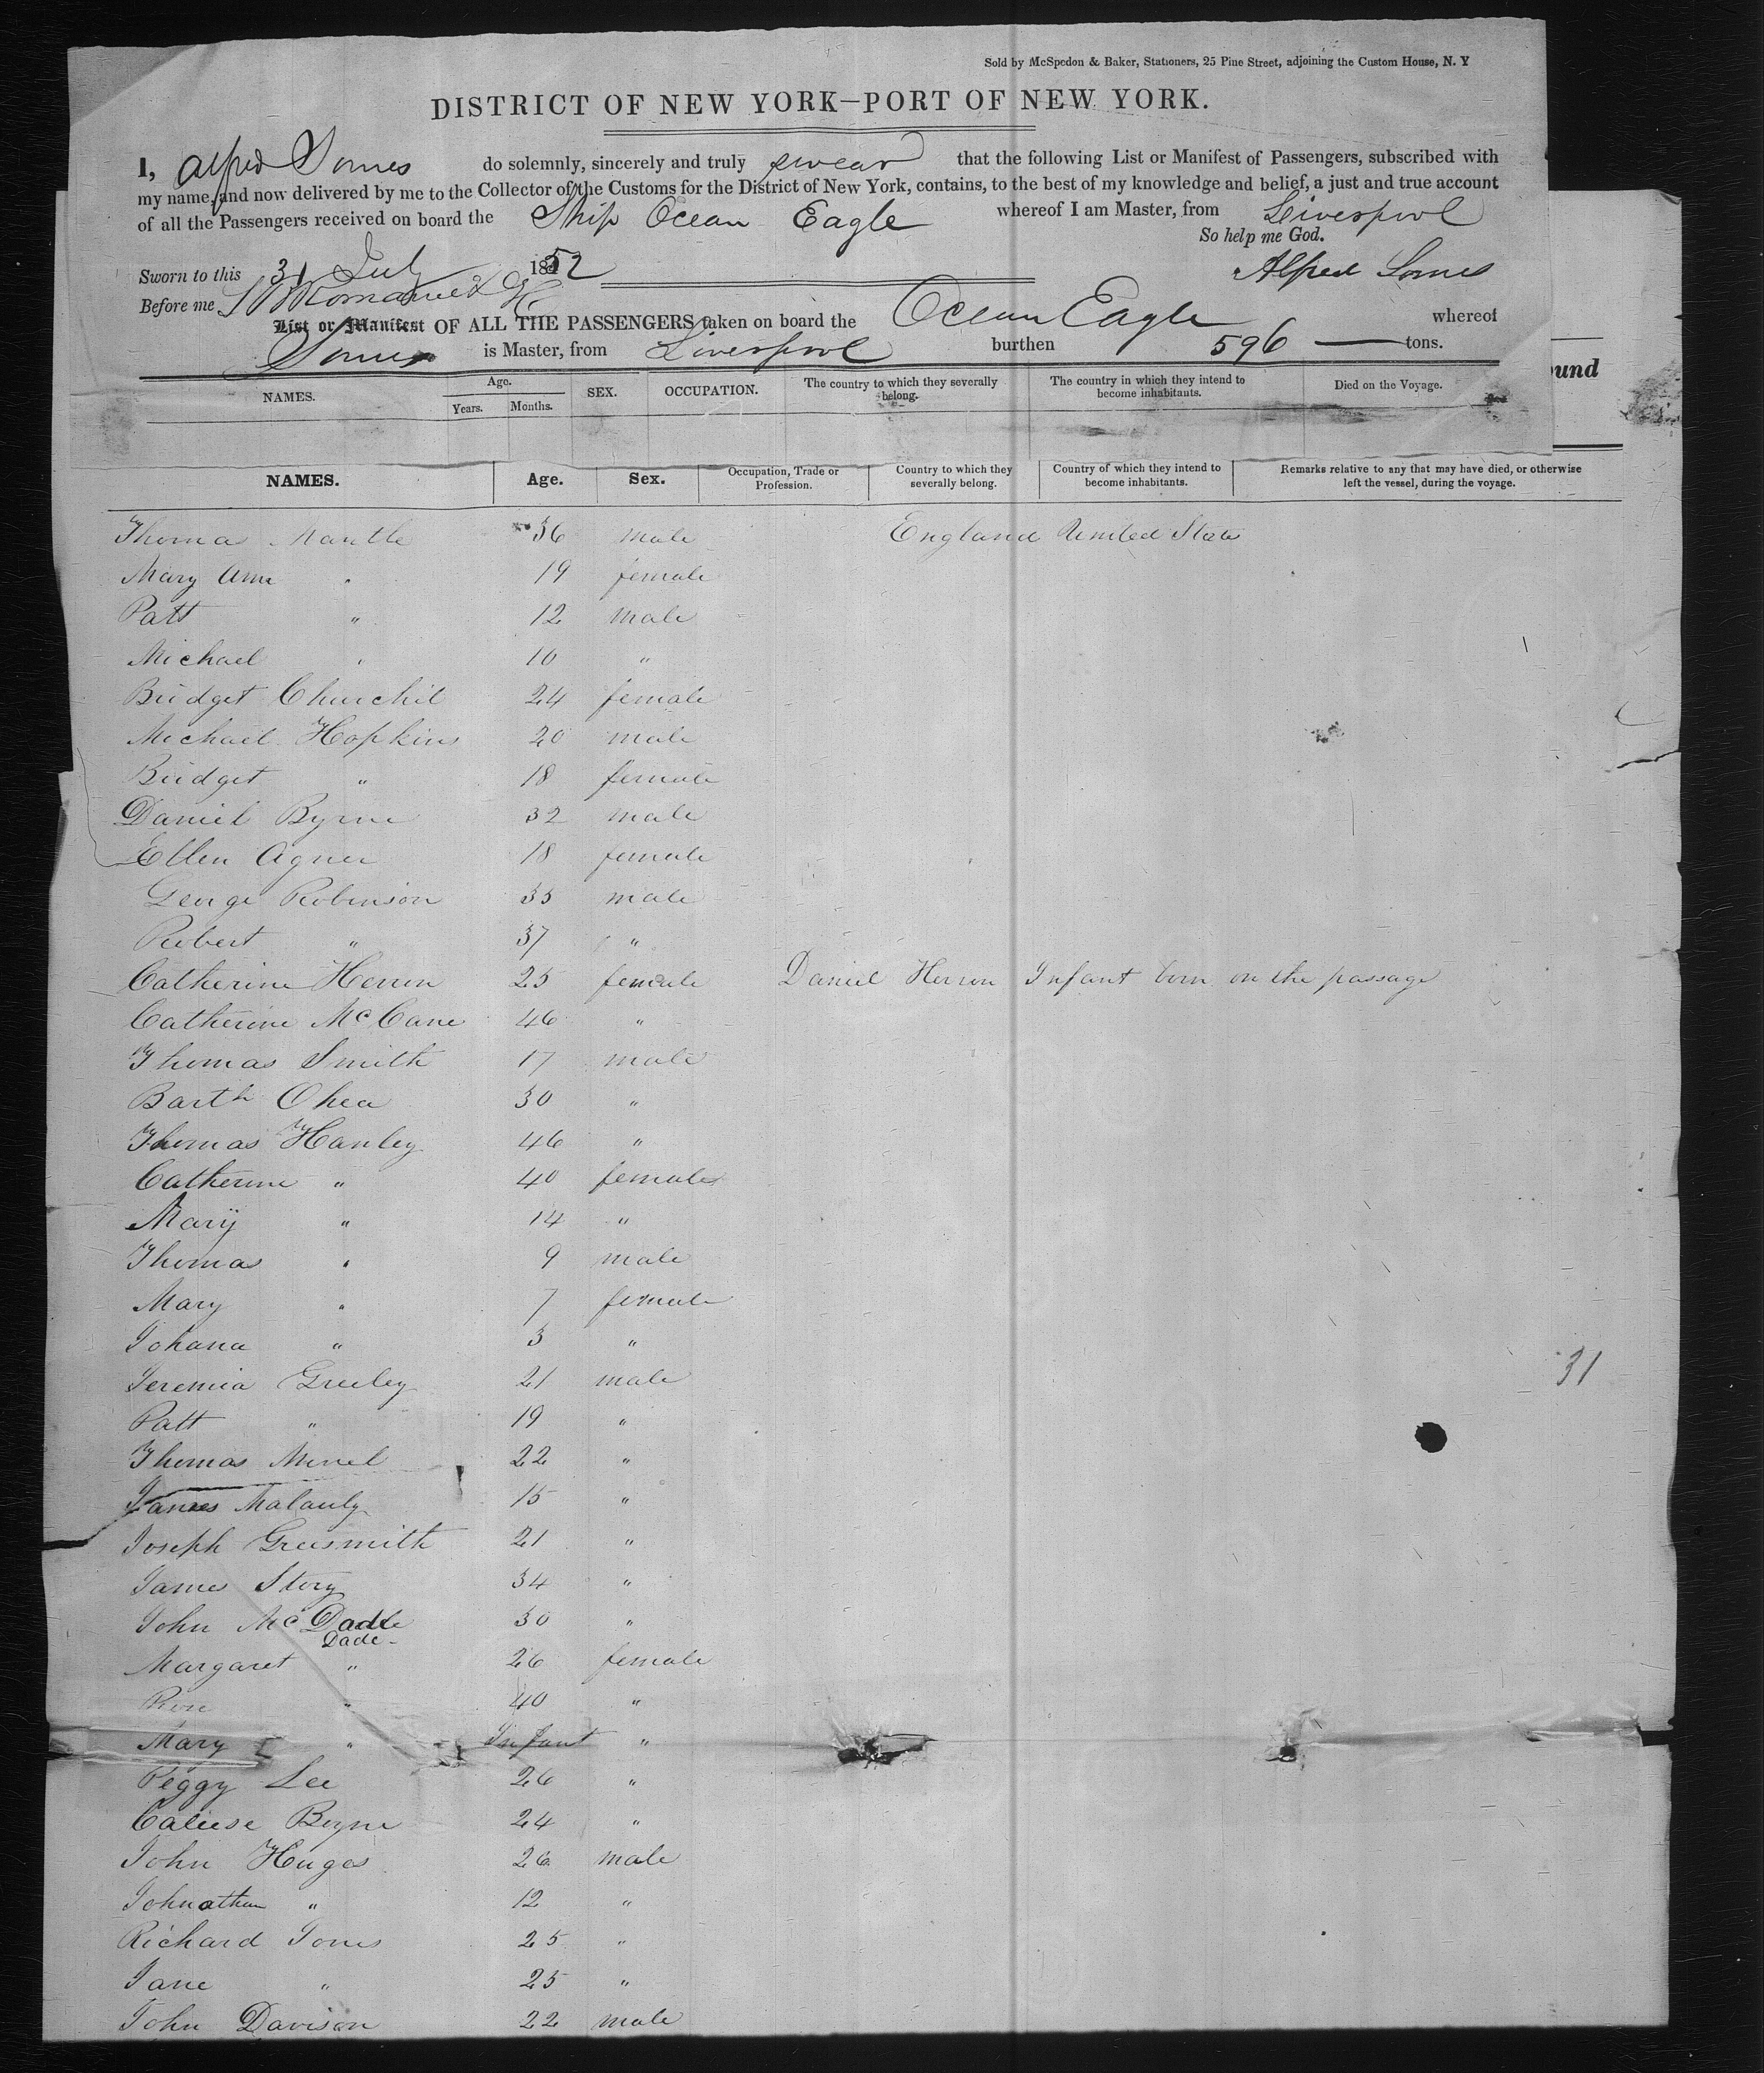 Sold by McSpedon & Baker, Stationers, 25 Pine Street, adjoining the Custom House, N. Y
DISTRICT OF NEW YORK—PORT OF NEW YORK.
I, Alfred Somes do solemnly, sincerely and truly swear that the following List or Manifest of Passengers, subscribed with
my name, and now delivered by me to the Collector of the Customs for the District of New York, contains, to the best of my knowledge and belief, a just and true account
of all the Passengers received on board the Ship Ocean Eagle whereof I am Master, from Liverpool
So help me God.
Sworn to this 31 July 1852
Alfred Somes
Before me
List or Manifest OF ALL THE PASSENGERS taken on board the Ocean Eagle whereof
Somes is Master, from Liverpool burthen 596 tons.
NAMES. Age. Years. Months. SEX. OCCUPATION. The country to which they severally belong. The country in which they intend to become inhabitants. Died on the Voyage.
ound
NAMES. Age. Sex. Occupation, Trade or Profession. Country to which they severally belong. Country of which they intend to become inhabitants. Remarks relative to any that may have died, or otherwise left the vessel, during the voyage.
Thomas Mantle 36 male England United States
Mary Ann " 19 female
Patt " 12 male
Michael " 10 "
Bridget Churchil 24 female
Michael Hopkins 20 male
Bridget " 18 female
Daniel Byrne 32 male
Ellen Agner 18 female
George Robinson 35 male
Robert " 37 "
Catherine Herron 25 female Daniel Herron Infant born on the passage
Catherine McCane 46 "
Thomas Smith 17 male
Barth Ohea 30 "
Thomas Hanley 46 "
Catherine " 40 female
Mary " 14 "
Thomas " 9 male
Mary " 7 female
Johana " 3 "
Jeremia Greeley 21 male
31
Patt " 19 "
Thomas 22 "
James Malauly 15 "
Joseph Greismith 21 "
James Story 34 "
John McDade 30 "
Dade
Margaret " 26 female
Rose " 40 "
Mary " Infant "
Peggy Lee 26 "
Byrne 24 "
John Huges 26 male
Johnathan " 12 "
Richard Jones 25 "
Jane " 25 "
John Davison 22 male